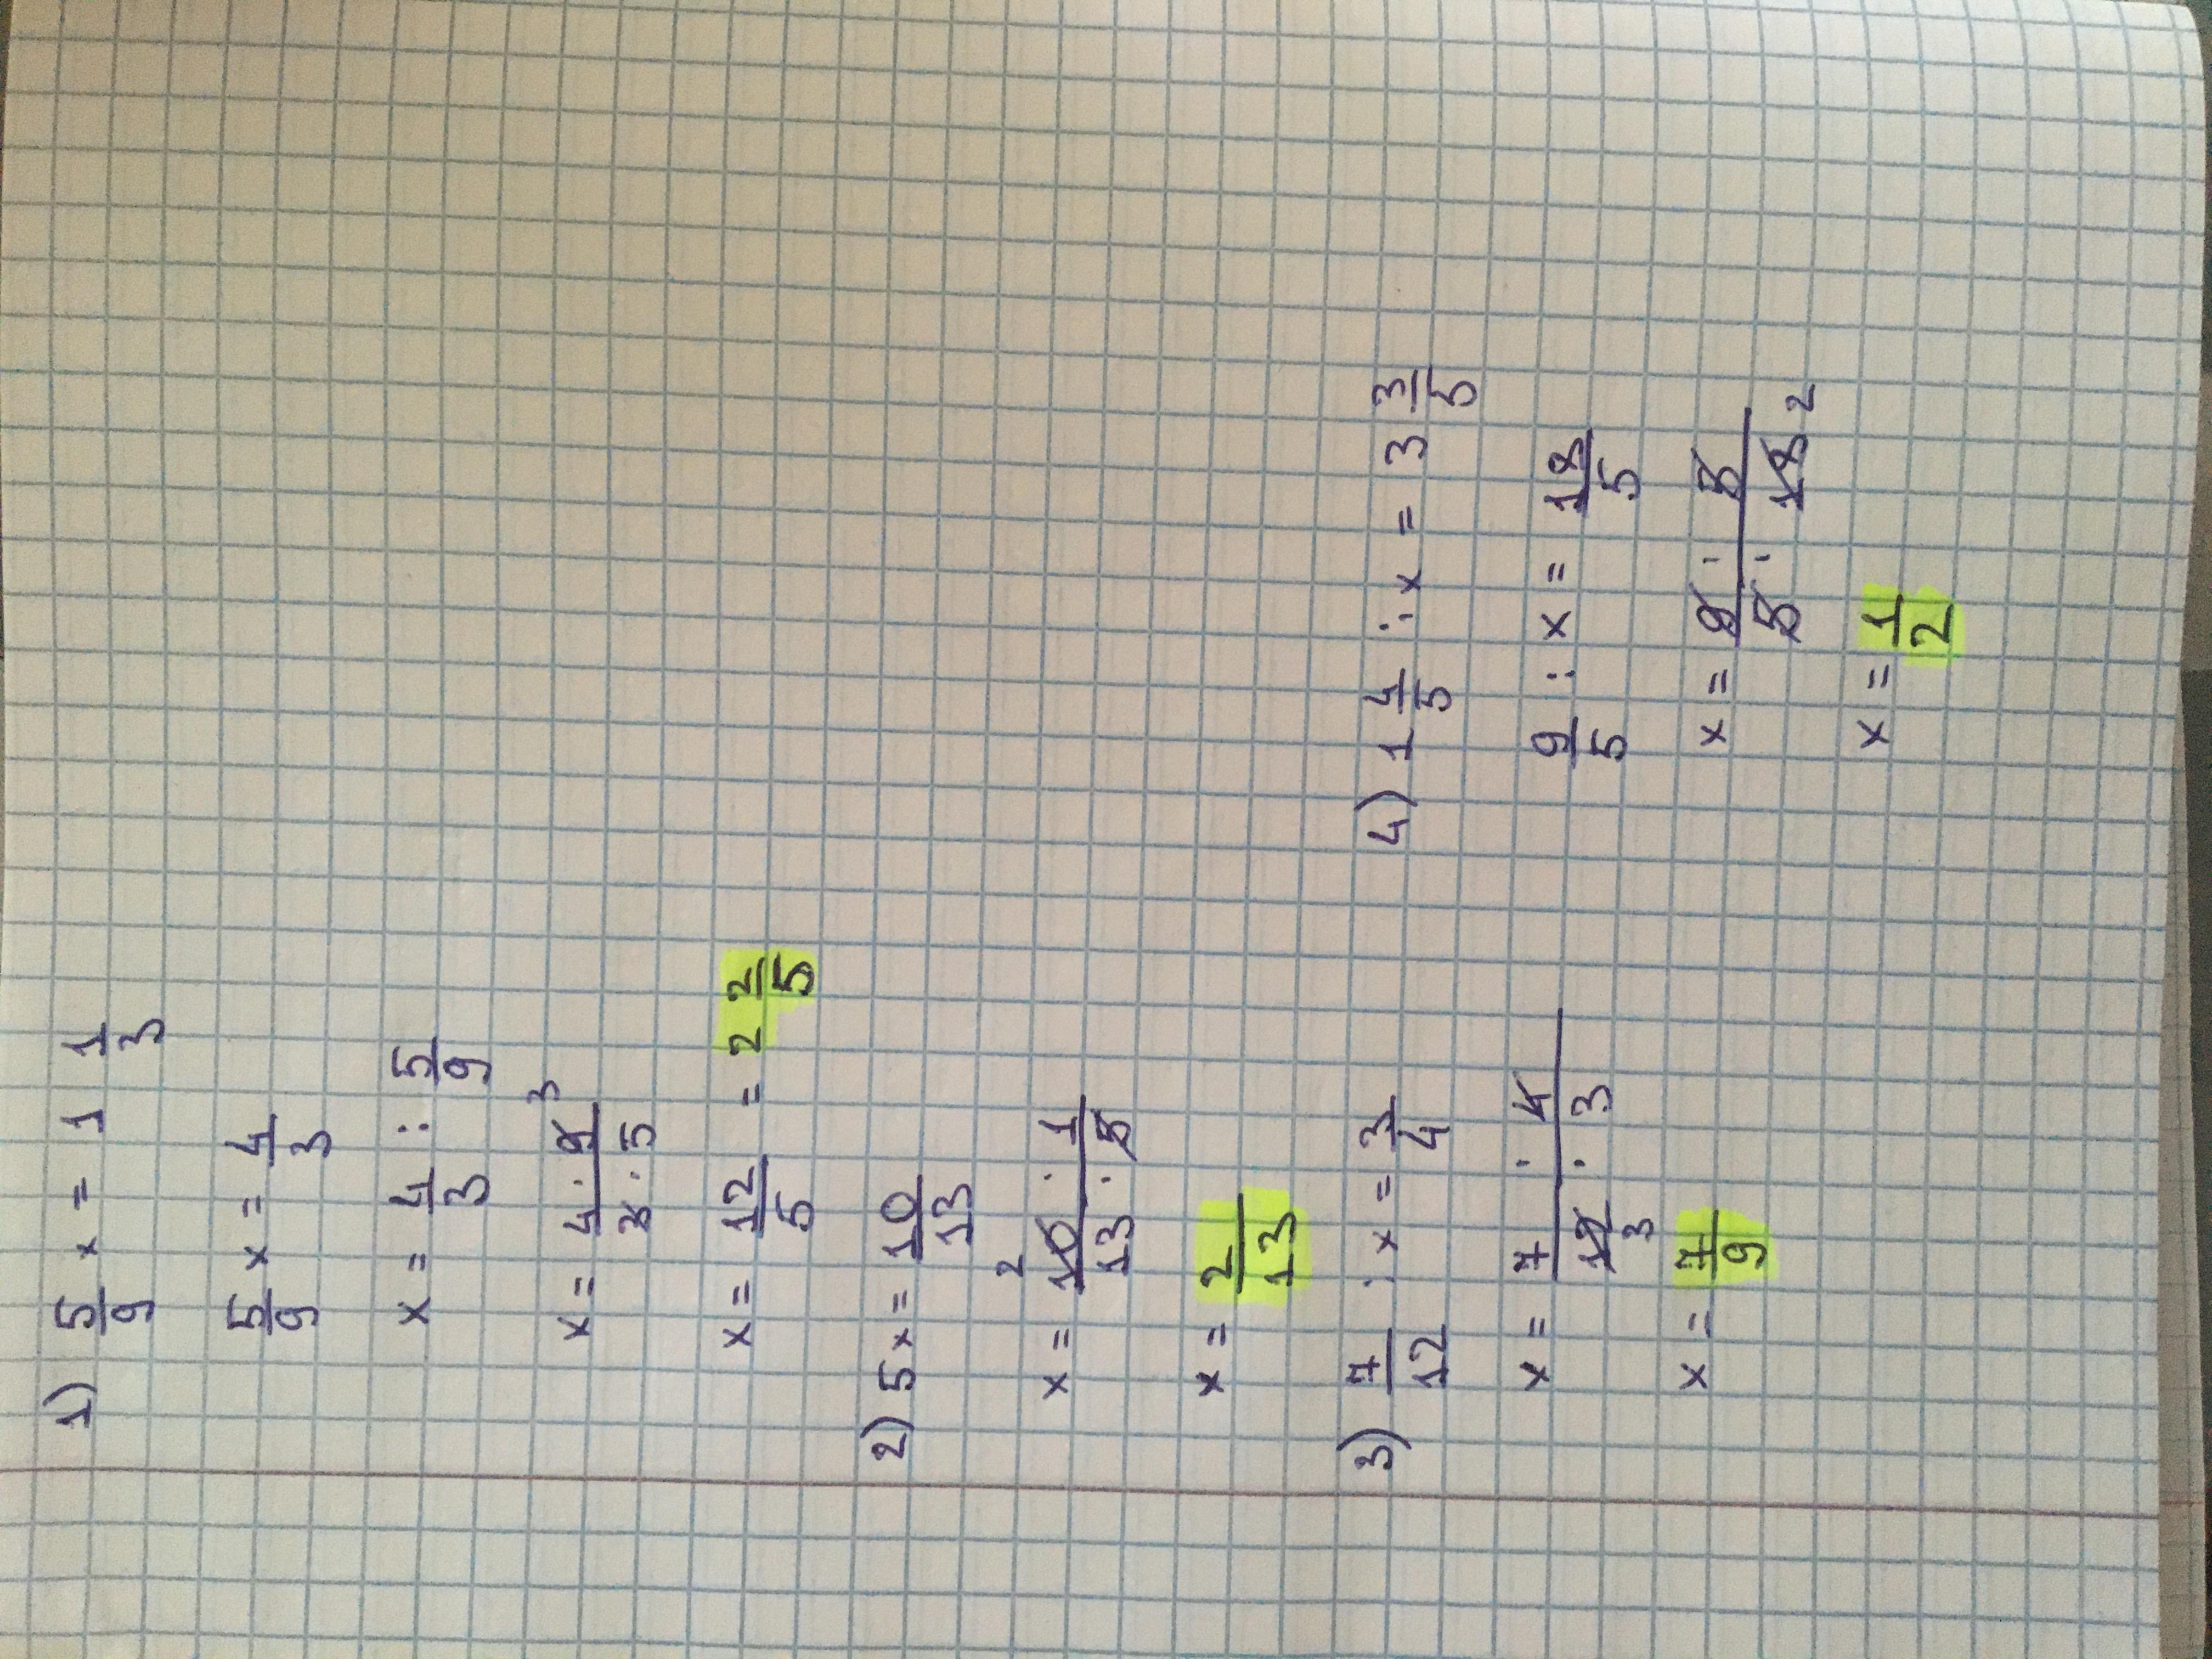 1) 5/9 x = 1 1/3
5/9 x = 4/3
x = 4/3 : 5/9
x = 4 · 9 3 / 3 · 5
x = 12/5 = 2 2/5
2) 5x = 10/13
x = 2 10 · 1 / 13 · 5
x = 2/13
3) 7/12 : x = 3/4
x = 7 · 4 / 12 3 · 3
x = 7/9
4) 1 4/5 : x = 3 3/5
9/5 : x = 18/5
x = 9 · 5 / 5 · 18 2
x = 1/2